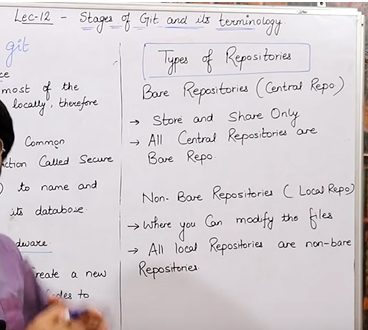 Lec-12 - Stages of Git and its terminology
git
ce
most of the
locally, therefore
Common
ction Called Secure
to name and
its database
dware
reate a new
des to
Types of Repositories
Bare Repositories (Central Repo)
→ Store and Share Only
→ All Central Repositories are
Bare Repo
Non-Bare Repositories ( Local Repo)
→ Where you Can modify the files
→ All local Repositories are non-bare
Repositories